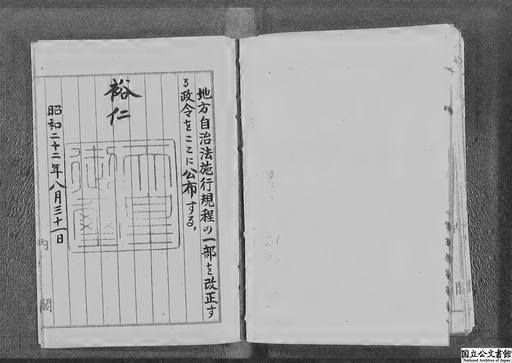 地方自治法施行規程の一部を改正す
る政令をここに公布する。
裕仁
天皇御璽
昭和二十二年八月三十一日
内閣
国立公文書館
National Archives of Japan